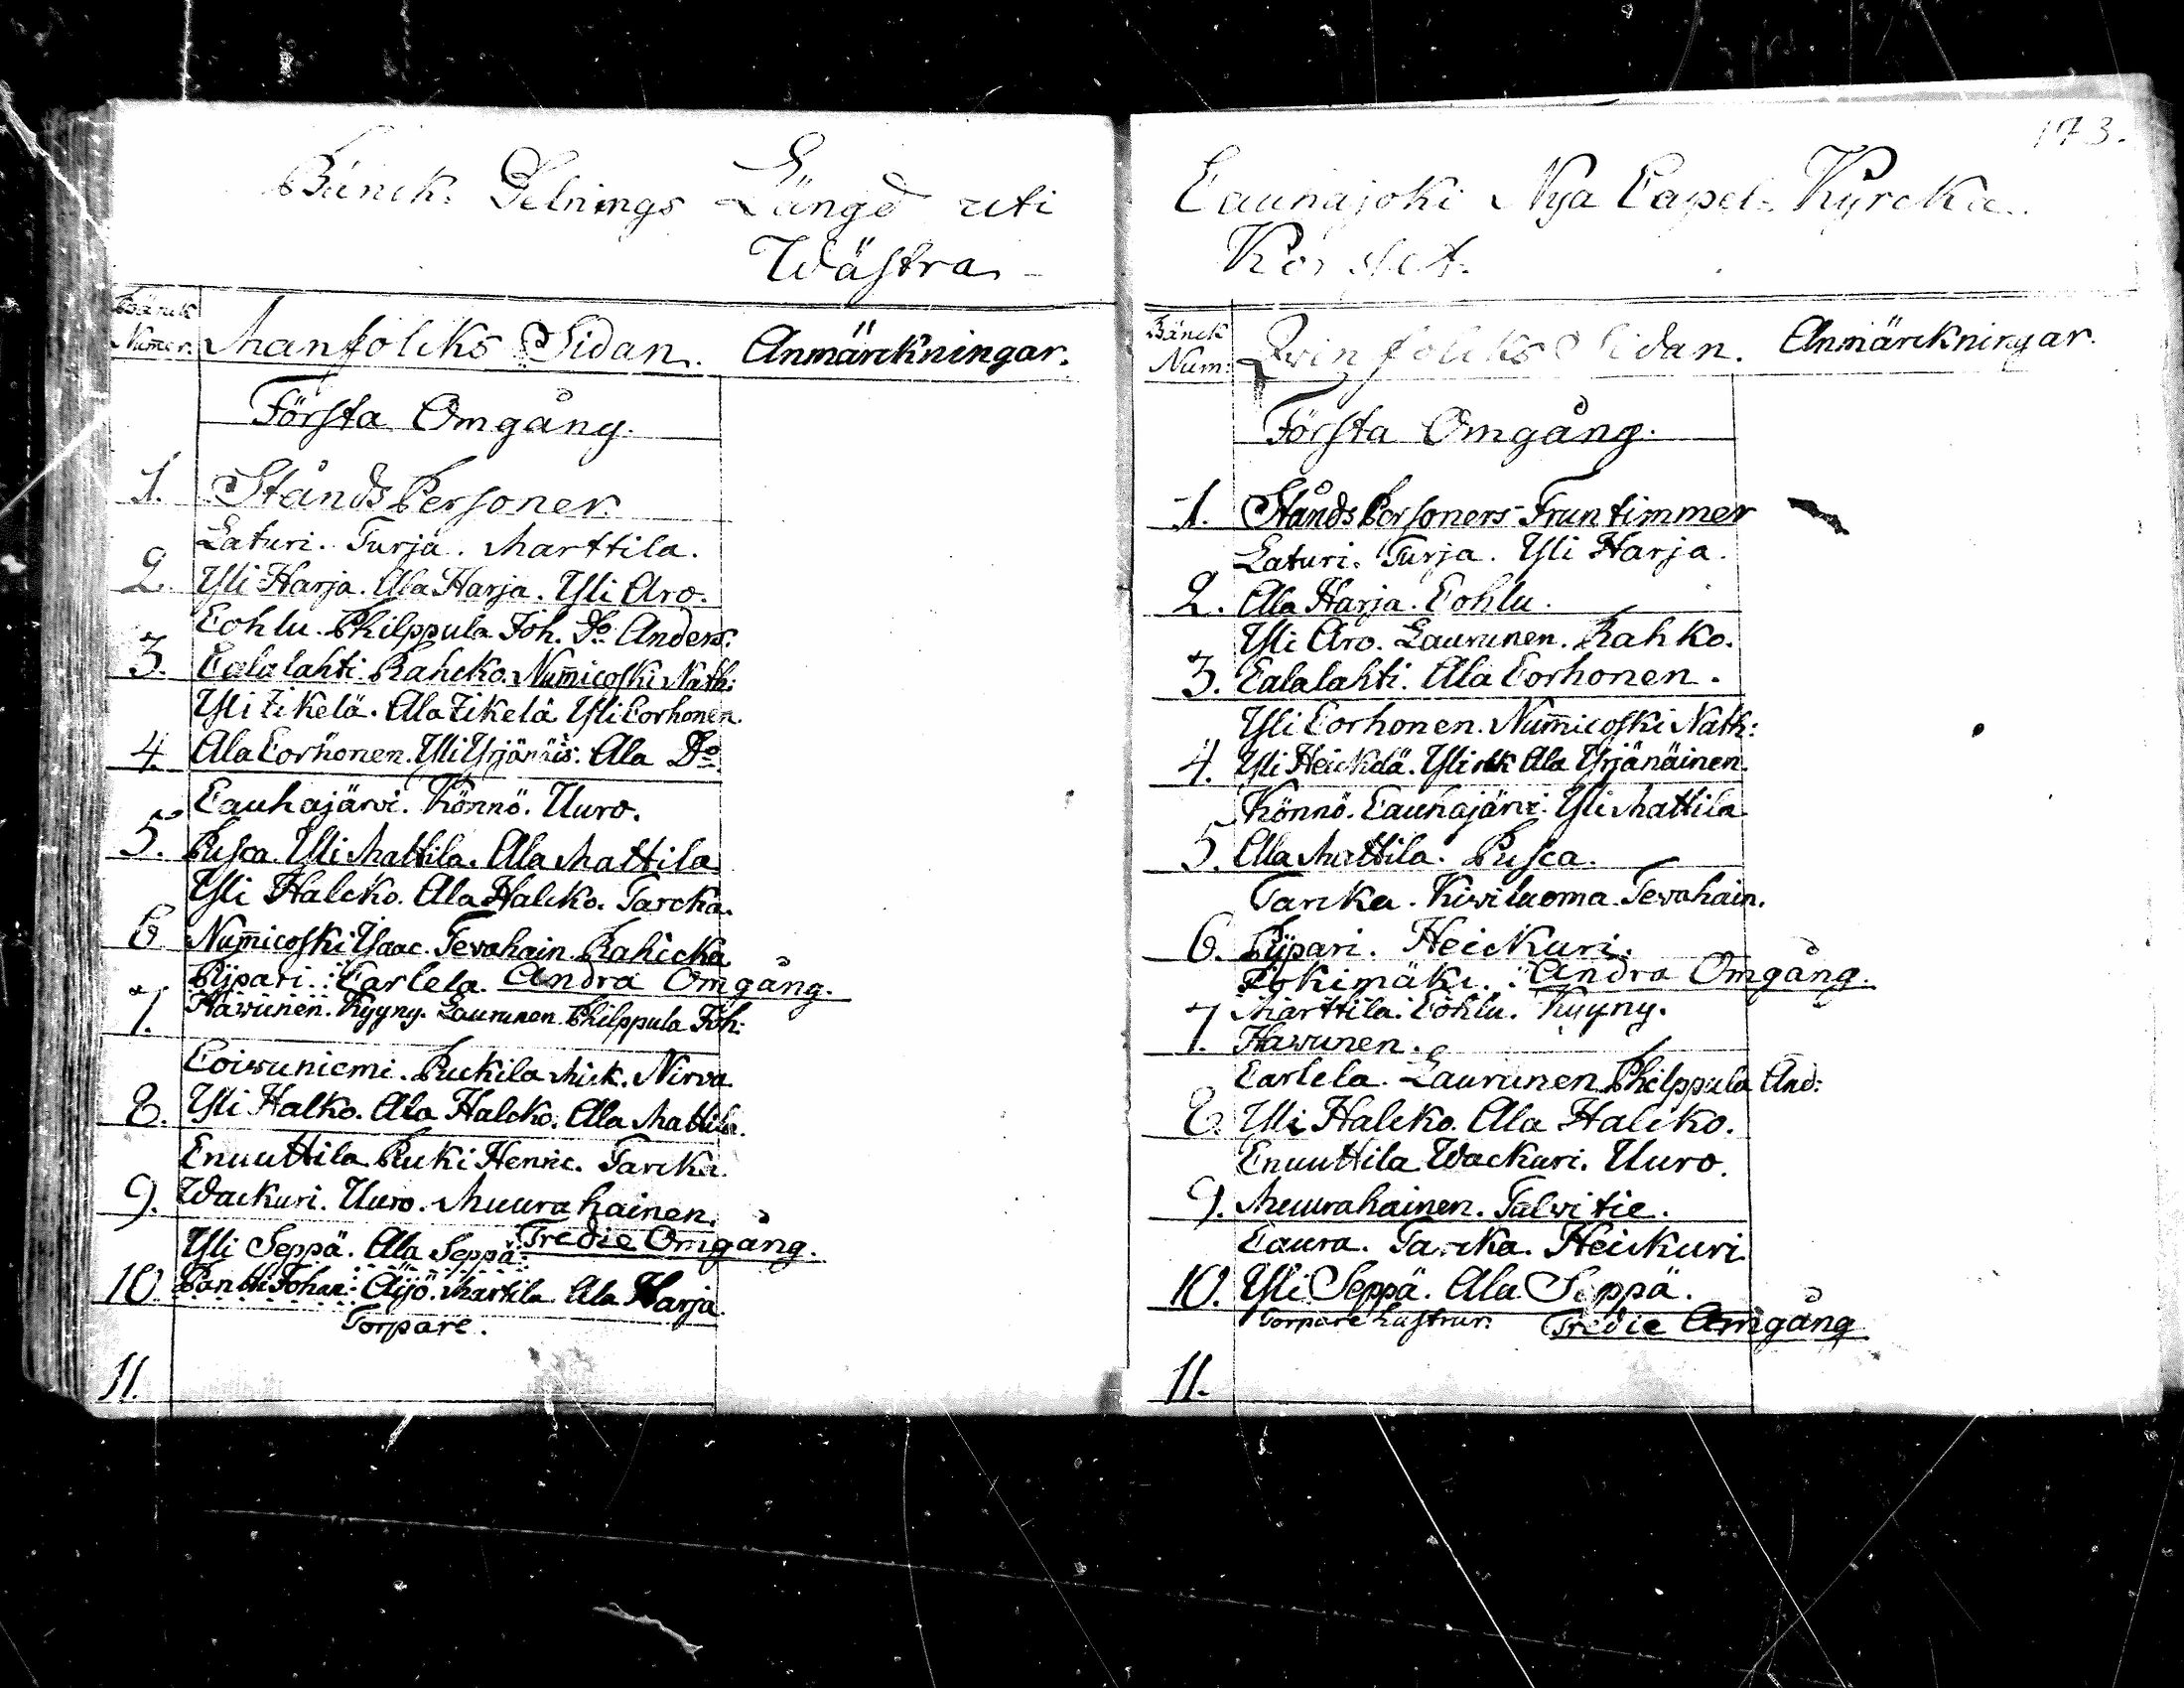 Bänck. Delnings Längd uti
Wästra
Bänck
Numer. Manfolcks Sidan. Anmärckningar.
Första Omgång.
1. Stånds Personer.
Laturi. Turja. Marttila.
2. Yli Harja. Ala Harja. Yli Aro.
Cohlu. Philppula Joh. Do Anders.
3. Calalahti. Rahcko. Num̄icoski Nath:
Yli Ala Yli Corhonen.
4. Ala Corhonen. Yli Yrjänäis. Ala Do
Cauhajärvi. Könnö. Uuro.
5. Pusca. Yli Mattila. Ala Mattila
Yli Halcko. Ala Halcko. Tarcka.
6 Num̄icoski Ysaac. Tevahain. Rahicka
Pijpari. Carlela. Andra Omgång.
7. Hawunen. Kyyny. Laurunen. Philppula Joh:
Coivuniemi. Puckila Mick. Nirva
8. Yli Halko. Ala Halcko. Ala Mattila.
Cnuuttila. Pucki Henric. Tarcka.
9. Wackuri. Uuro. Muurahainen.
Yli Seppä. Ala Seppä. Tredie Omgång.
10 Pantti Johan. Äijö. Martila. Ala Harja
Torpare.
11.
173.
Cauhajoki Nya Capel. Kyrcka.
Korsset.
Bänck
Num: Qvinfolcks Sidan. Anmärckningar.
Första Omgång.
1. Stånds Personers Fruntimmer
Laturi. Turja. Yli Harja.
2. Ala Harja. Cohlu.
Yli Aro. Laurunen. Rahko.
3. Calalahti. Ala Corhonen.
Yli Corhonen. Num̄icoski Nath:
4. Yli Heickelä. Yli och Ala Yrjänäinen.
Könnö. Cauhajärvi. Yli Mattila
5. Ala Mattila. Pusca.
Tarcka. Kiviluoma. Tevahain.
6. Pijpari. Heickuri.
Jokimäki. Andra Omgång.
7. Marttila. Cohlu. Kyyny.
Hawunen.
Carlela. Laurunen. Philppula And:
8. Yli Halcko. Ala Halcko.
Cnuuttila. Wackuri. Uuro.
9. Muurahainen. Talvitie.
Caura. Tarcka. Heickuri
10. Yli Seppä. Ala Seppä.
Torpare Hustrur. Tredie Omgång
11.